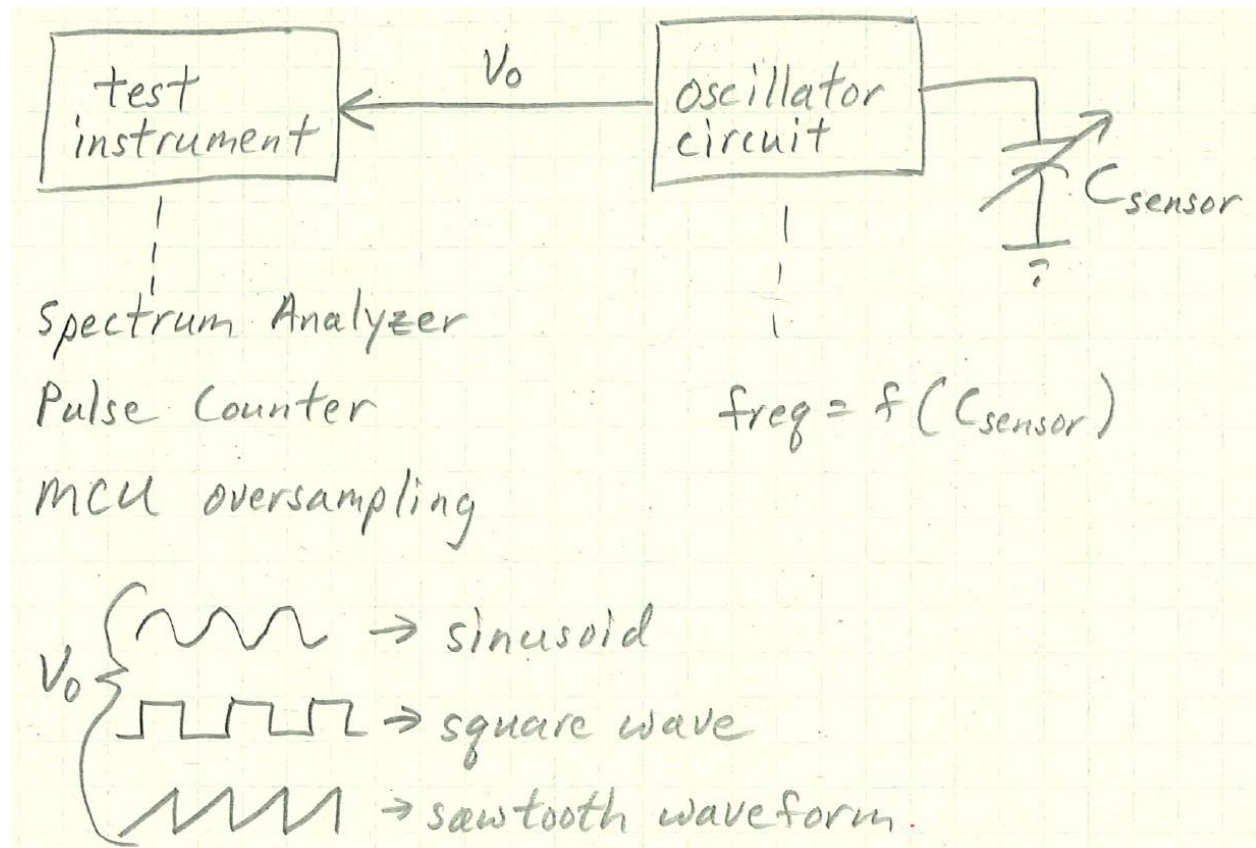 test
instrument
Vo
oscillator
circuit
Csensor
Spectrum Analyzer
Pulse Counter
MCU oversampling
freq = f(Csensor)
Vo
→ sinusoid
→ square wave
→ sawtooth waveform.